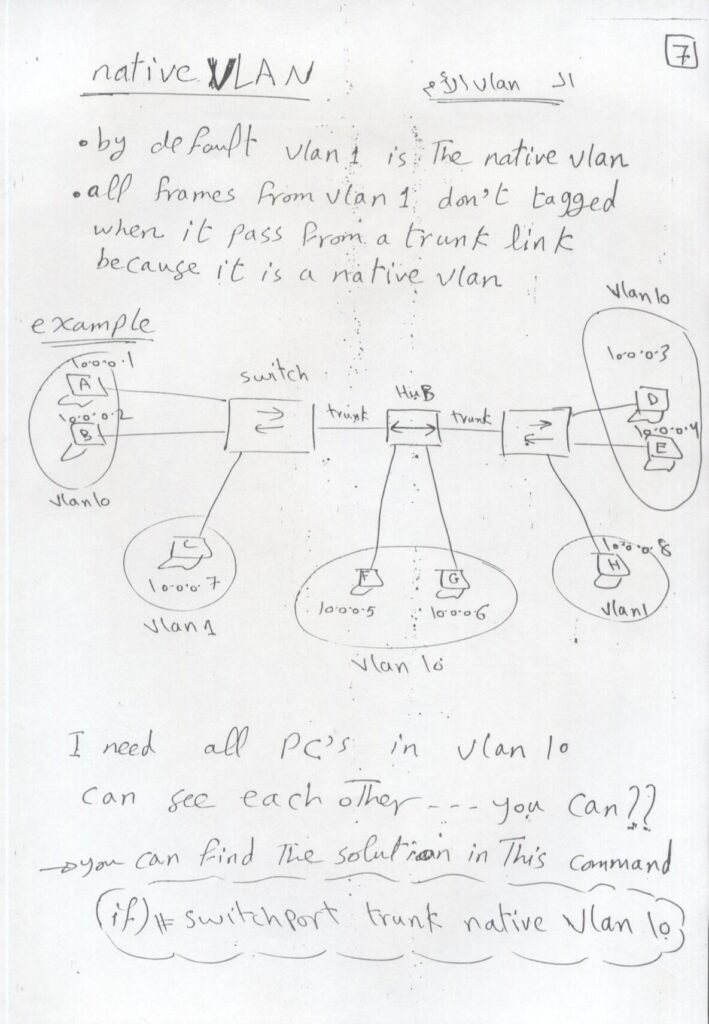 7
native VLAN
الـ vlan الأم
• by default vlan 1 is The native vlan
• all frames from vlan 1 don't tagged
when it pass from a trunk link
because it is a native vlan
example
vlan 10
10.0.0.1
A
10.0.0.2
B
vlan 10
switch
trunk
HuB
trunk
10.0.0.3
D
10.0.0.4
E
C
10.0.0.7
vlan 1
F
10.0.0.5
G
10.0.0.6
vlan 10
10.0.0.8
H
vlan 1
I need all PC's in vlan 10
can see each other --- you can??
→ you can find The solution in This command
(if)# switchport trunk native vlan 10